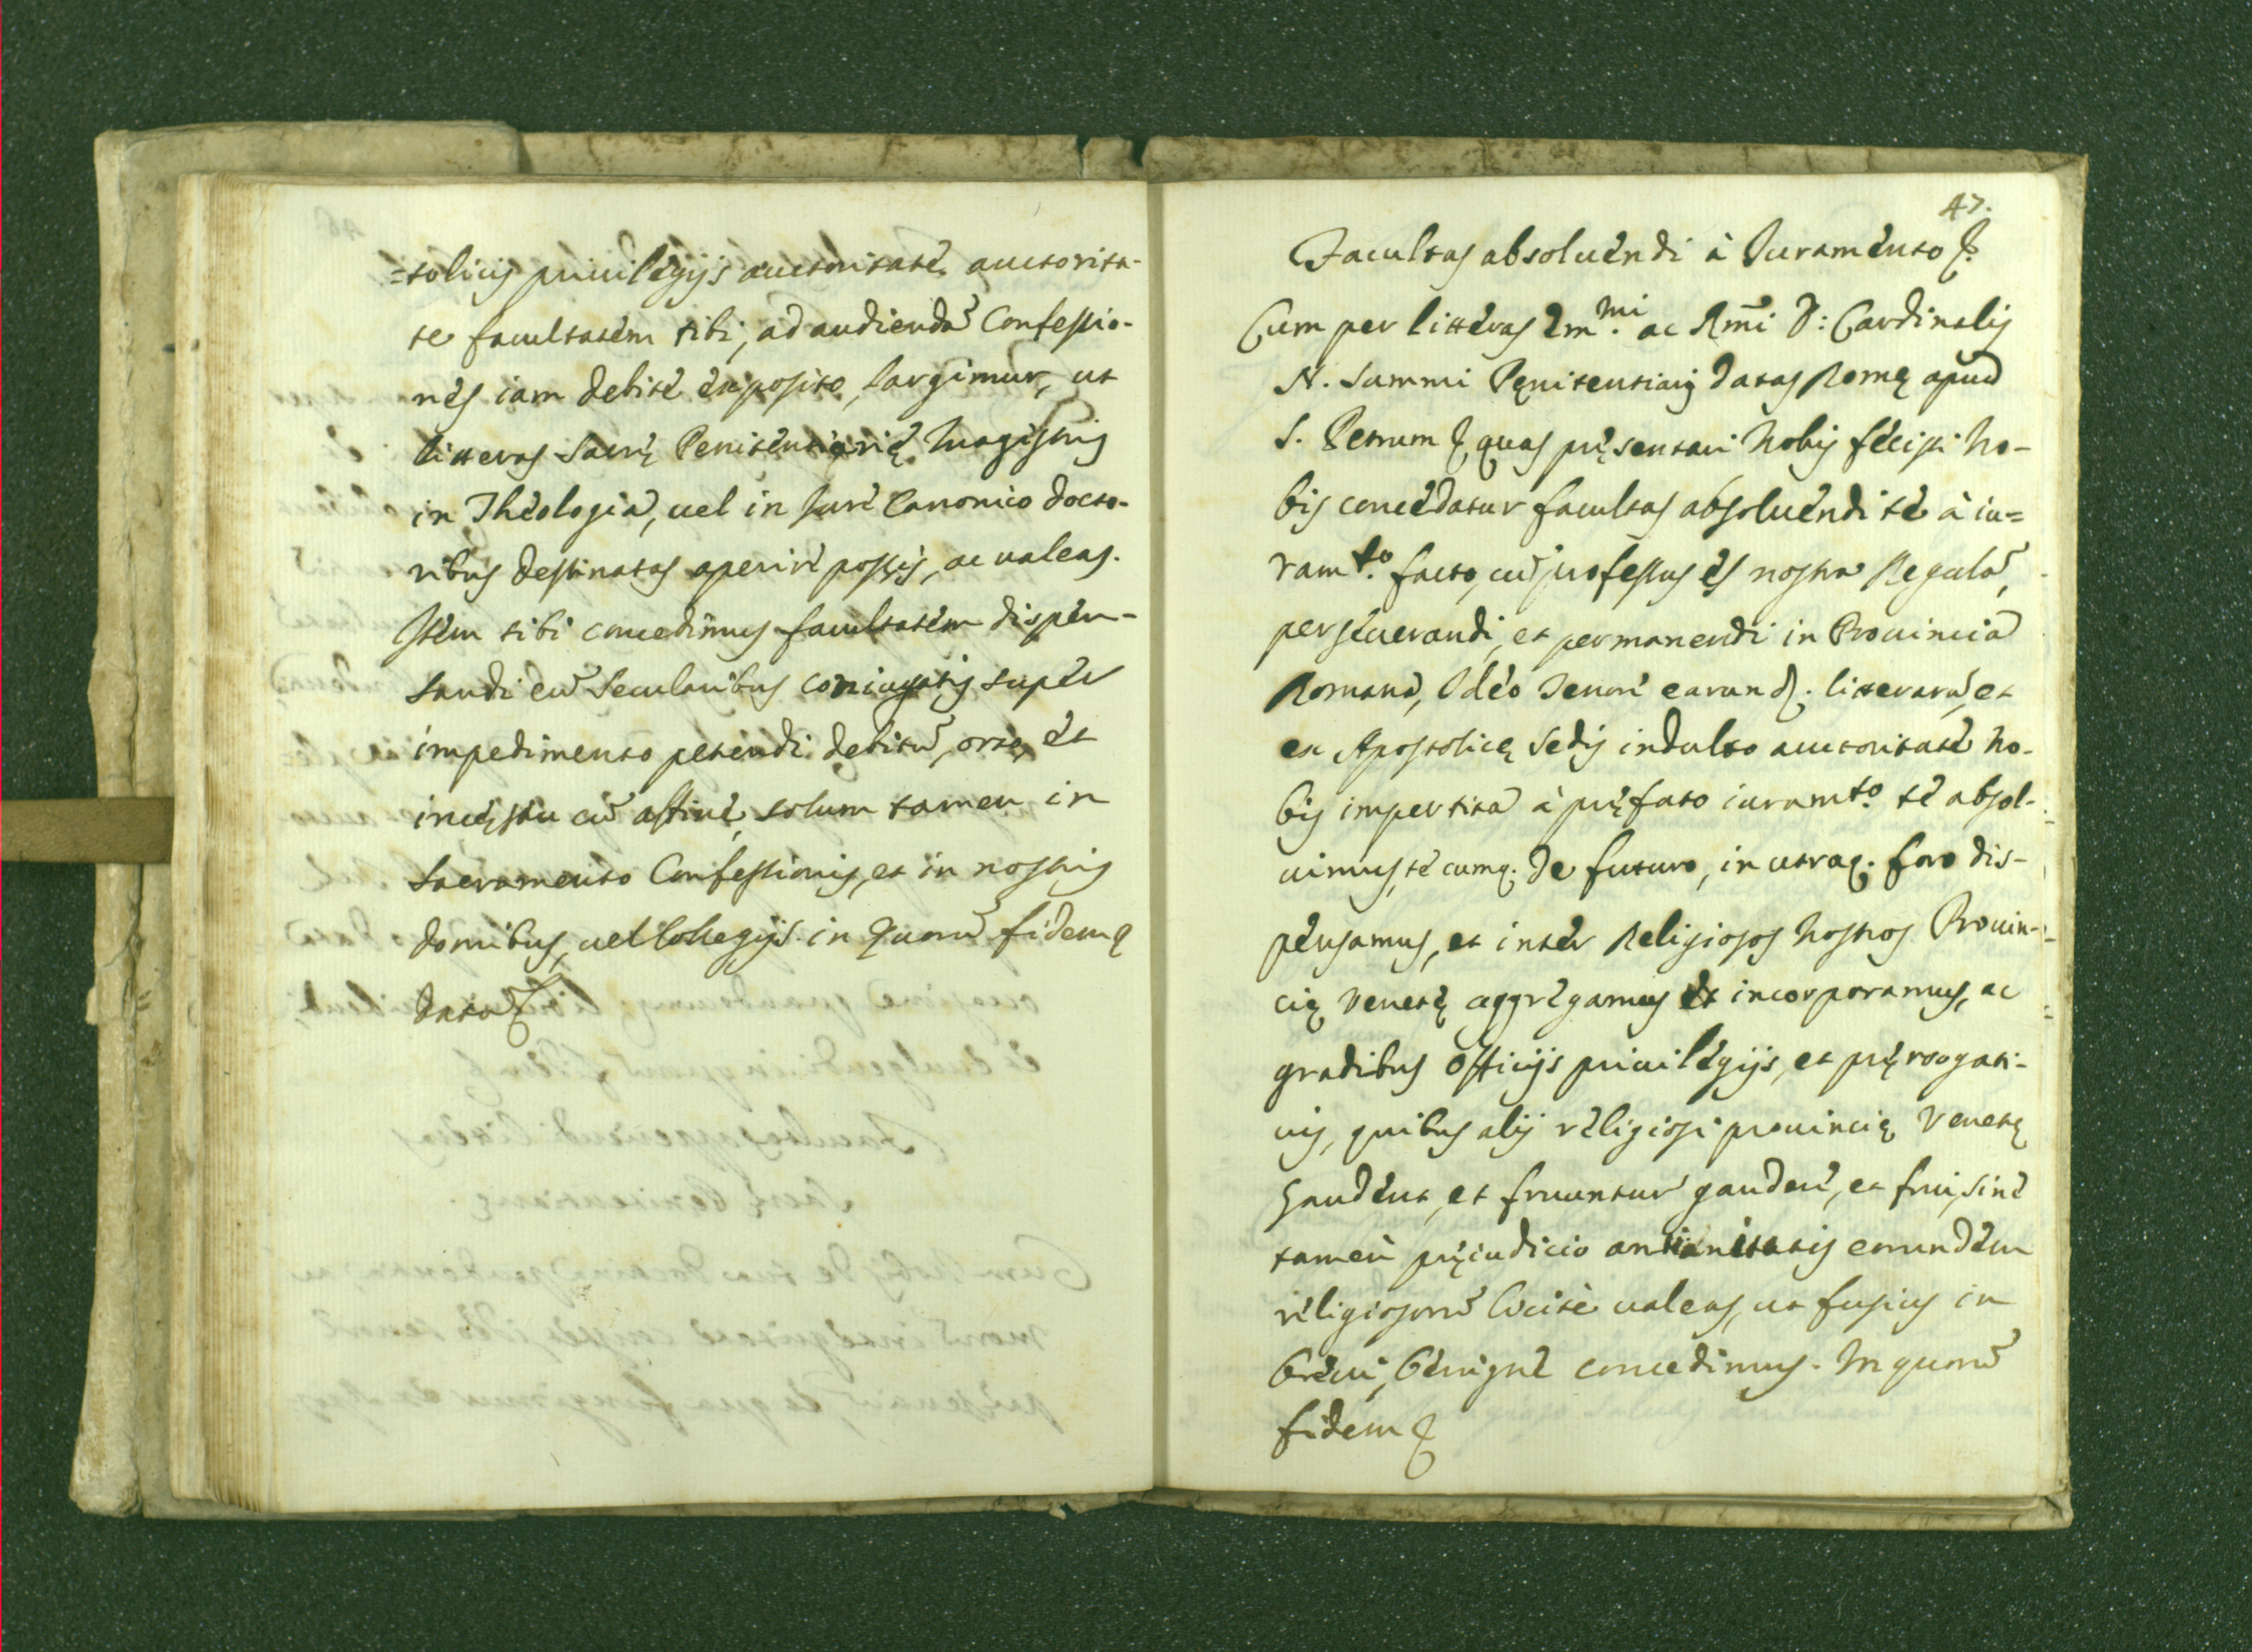 =tolicis priuilegijs auctoritate, auctorita-
te facultatem tibi, ad audienda͂ Confessio-
nes iam debite exposito, largimur, ut
litteras Sacrę Penitentiarię Magistris
in Theologia, uel in Iure Canonico docto-
ribus destinatas aperire possis, ac ualeas.
Item tibi concedimus facultatem dispen-
sandi cu͂ Secularibus coniugatis super
impedimento petendi debitu͂, orto, et
incęstu cu͂ affine, solum tamen in
Sacramento Confessionis, et in nostris
domibus, uel Collegijs. in quoru͂ fidem &
datu͂ &
47.
Facultas absoluendi à Iuramento &.
Cum per litteras Em.mi ac Rm̃i D: Cardinalis
N. Summi Pęnitentiarij datas Romę apud
S. Petrum &, quas pręsentari Nobis fecisti No-
bis concedatur facultas absoluendi te à iu=
ram.to facto, cu͂ professus es nostra Regula͂,
perseuerandi, et permanendi in Prouincia
Romana, Ideo tenore earund. litteraru͂, et
ex Apostolicę Sedis indulto auctoritate No-
bis impertita à pręfato iuram.to te absol-
uimus, te cumq. de futuro, in utroq. foro dis-
pensamus, et inter Religiosos Nostros Prouin-
cię Venetę aggregamus et incorporamus, ac
gradibus officijs priuilegijs, et pręrogati-
uis, quibus alij religiosi prouincię Venetę
gaudent, et fruuntur gaudere, et frui, sine
tamen pręiudicio antianitatis eorundem
religiosoru͂ licite ualeas, ut fusius in
breui, benigne concedimus. In quoru͂
fidem &